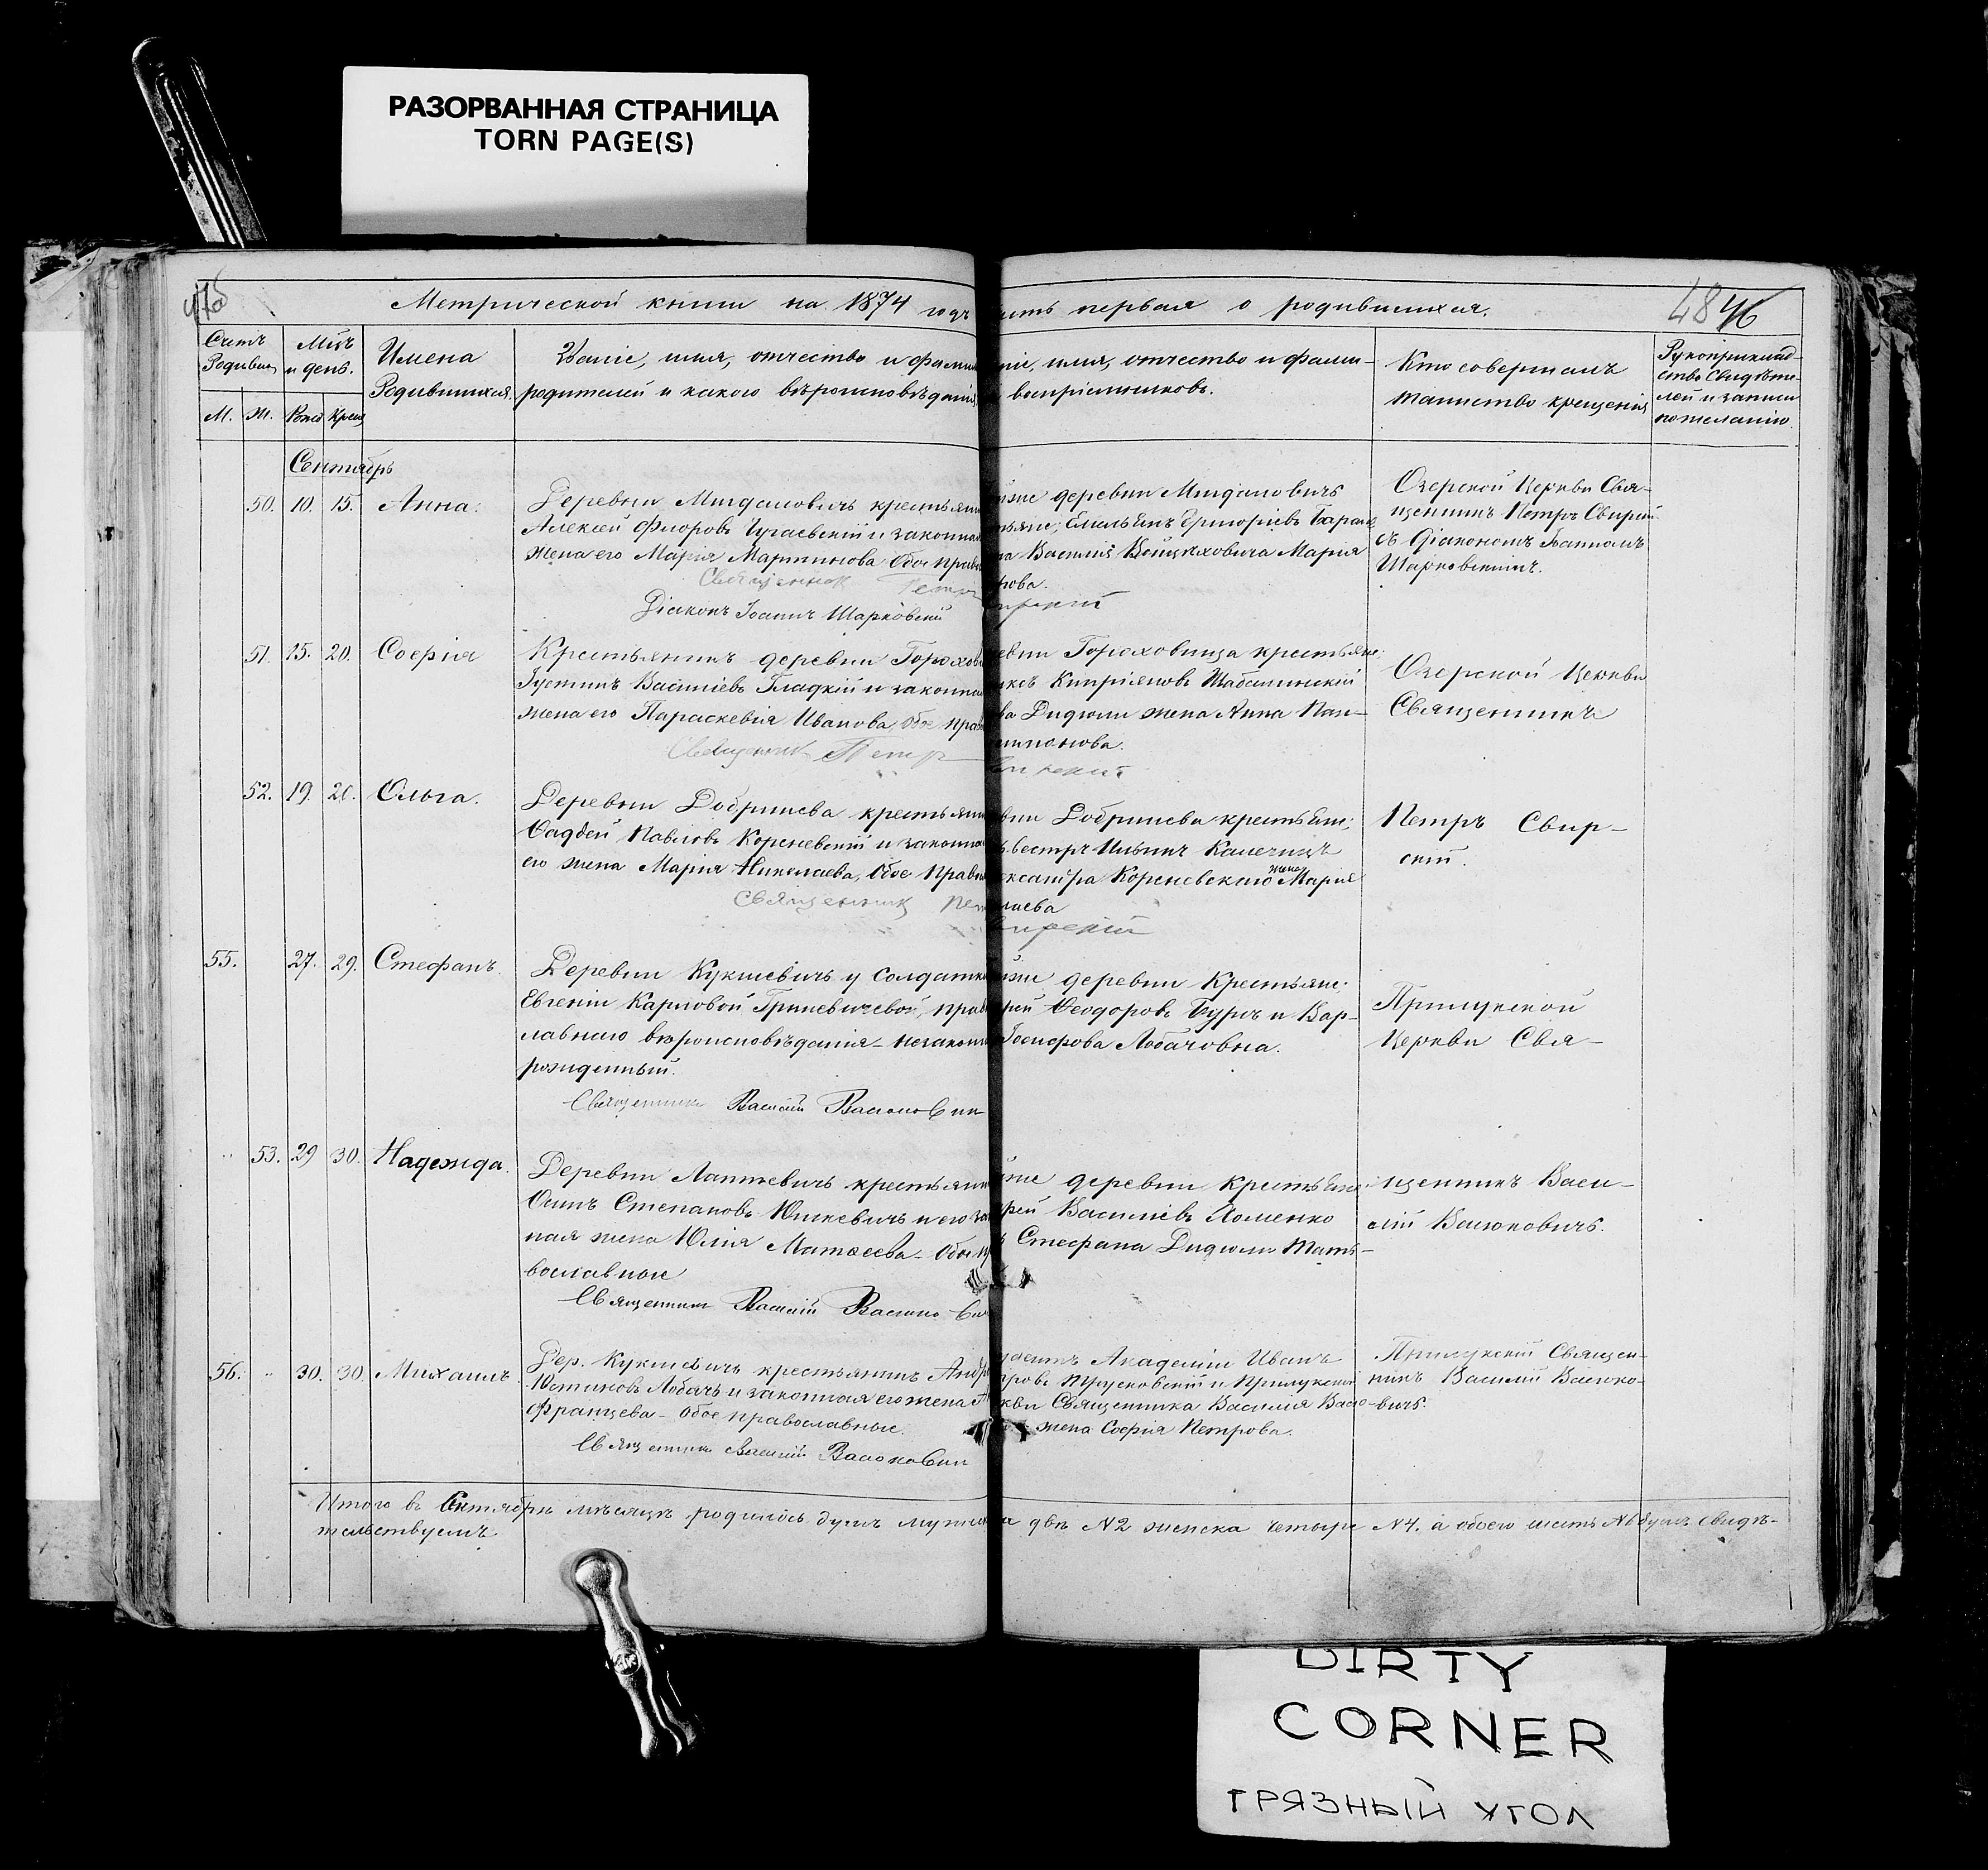 РАЗОРВАННАЯ СТРАНИЦА
TORN PAGE(S)
Метрической книги на 1874 годъ
первая о родившихся.
48 46
Счетъ
Родивш
М.
Ж.
Мцъ
и день.
Рожд
Крещ
Имена
Родившихся.
Званіе, имя, отчество и фами
родителей и какого вѣроисповѣданія
ніе, имя, отчество и фами-
воспріемниковъ.
Кто совершалъ
таинство крещенія
Рукоприклад-
ство свидѣте-
лей и записи
по желанію.
Сентябрь
50. 10. 15. Анна.
Деревни крестьяни
Алексѣй Флоровъ и законная
жена его Марія Мартинова Обое право
Священникъ Петръ
Діаконъ Іоаннъ Шарковскій
деревни
Григоріевъ
Василія Марія
нова.
Озерской Церкви Свя-
щенникъ Петръ Свирскій
съ Діакономъ Іоанномъ
Шарковскимъ.
51. 15. 20. Софія
Крестьянинъ деревни Горохови
Іустинъ Василіевъ Гладкій и законная
жена его Параскевія Иванова, Обое право
Священникъ Петръ
евни Гороховища крестьяне;
Кипріяновъ
ва Дидюли жена Анна Пан-
Озерской Церкви
Священникъ
52. 19. 20. Ольга.
Деревни Добринева крестьяни
Фаддей Павловъ Кореневскій и законна
его жена Марія Николаева, Обое Право
Священникъ Пет
евни Добринева крестьяне;
львестръ Ильинъ
ександра Кореневскаго жена Марія
лаева
Петръ Свир-
скій.
55. 27. 29. Стефанъ.
Деревни Кукшевичъ у солдатки
Евгеніи Карповой Гриневичевой, право
славнаго вѣроисповѣданія - незаконно
рожденный.
Священникъ Василій Васюкович
деревни Крестьяне;
Ѳеодоровъ Бурч и Вар-
Іосифова Лобачовна.
Прилукской
Церкви Свя-
53. 29 30. Надежда.
Деревни Лаптевичъ крестьяни
Осипъ Степановъ Юшкевичъ и его за
ная жена Юлія Матѳеева - Обое п
вославные
Священникъ Василій Васюкович
деревни Крестьяне
рей Василіевъ Хоменко
Стефана Дидюли Мать-
щенникъ Васи-
лій Васюковичъ.
56. 30. 30 Михаилъ
Дер. Кукшевичъ крестьянинъ Андр
Устиновъ Лобачъ и законная его жена
Францева - Обое православные.
Священникъ Василій Васюкович
Академіи Иванъ
ровъ Трусковскій и Прилукской
кви Священника Василія Васю-
жена Софія Петрова.
Прилукскій Священ-
никъ Василій Васюко-
вичъ.
Итого въ Сентябрѣ мѣсяцѣ родилось душъ мужеска двѣ №2 женска четыре №4. а обоего шесть №6 душъ свидѣ-
тельствуемъ
DIRTY
CORNER
ГРЯЗНЫЙ УГОЛ